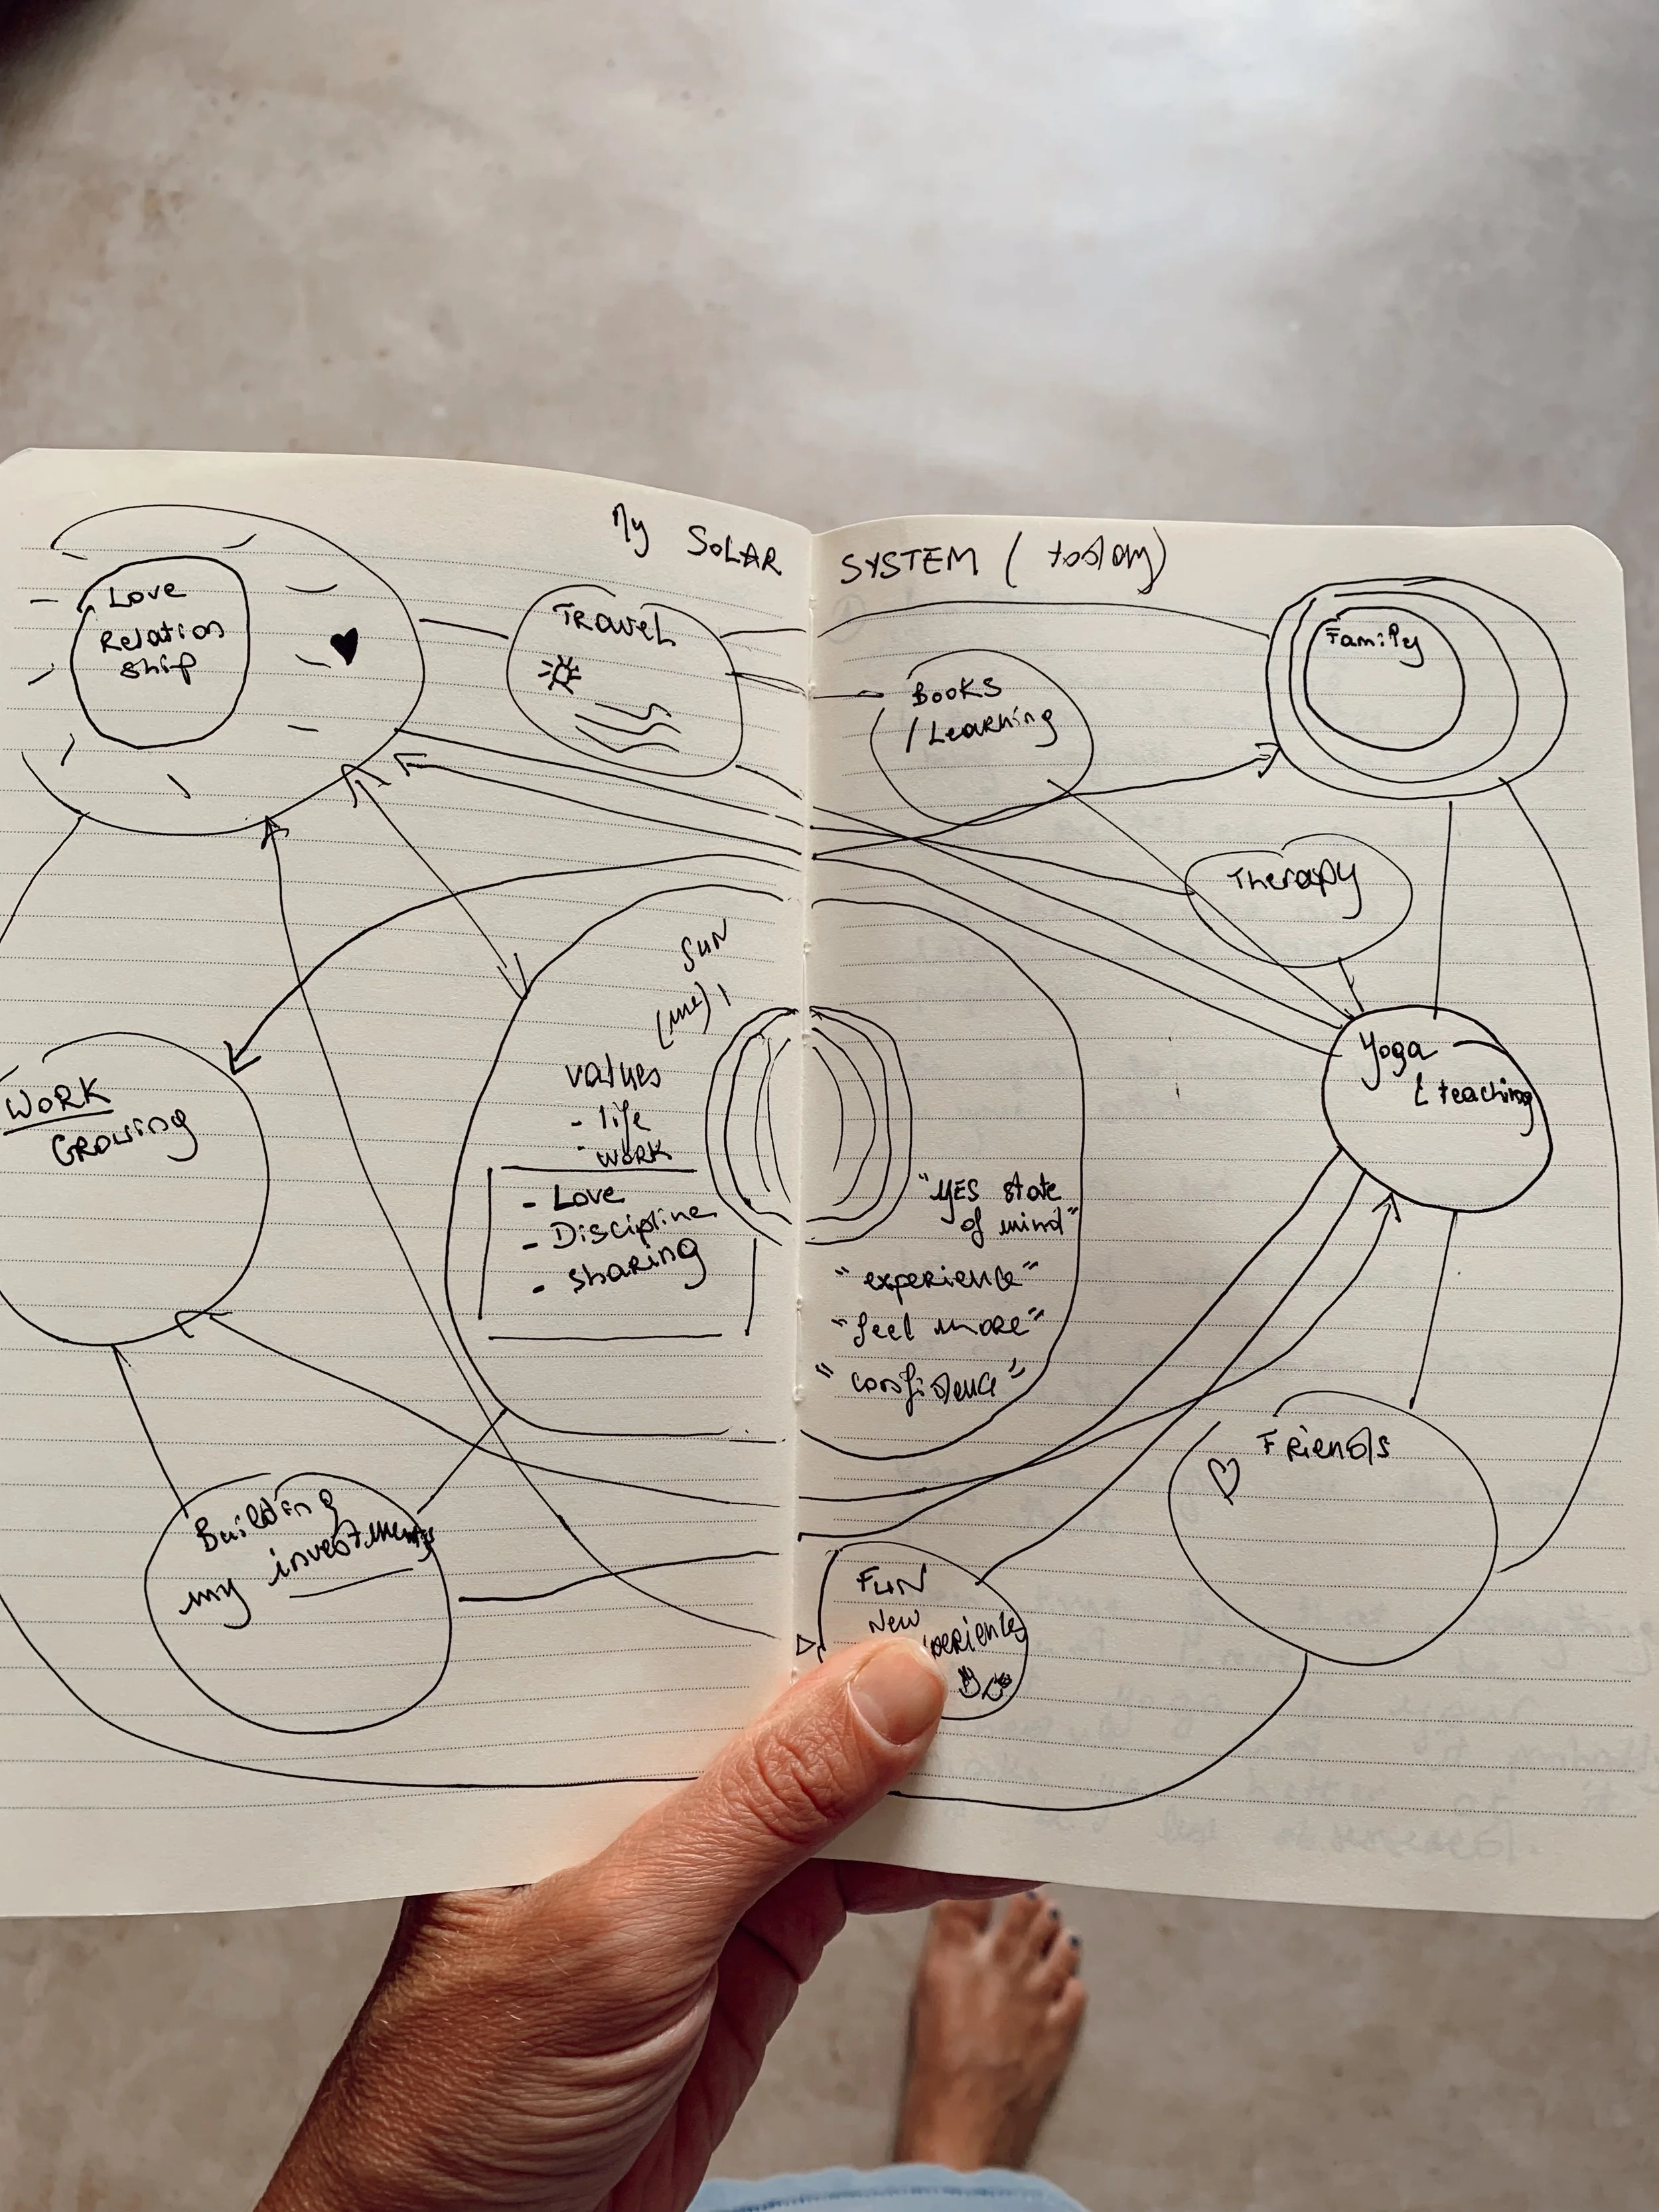 My SOLAR SYSTEM (today)
Love
Relation
ship
TRAVEL
BOOKS
/ Learning
Family
Therapy
SUN
(me)
values
- life
- WORK
- Love
- Discipline
- sharing
"YES state
of mind"
"experience"
"feel more"
"confidence"
WORK
GROWING
Yoga
& teaching
Building
my investments
FUN
New
Friends